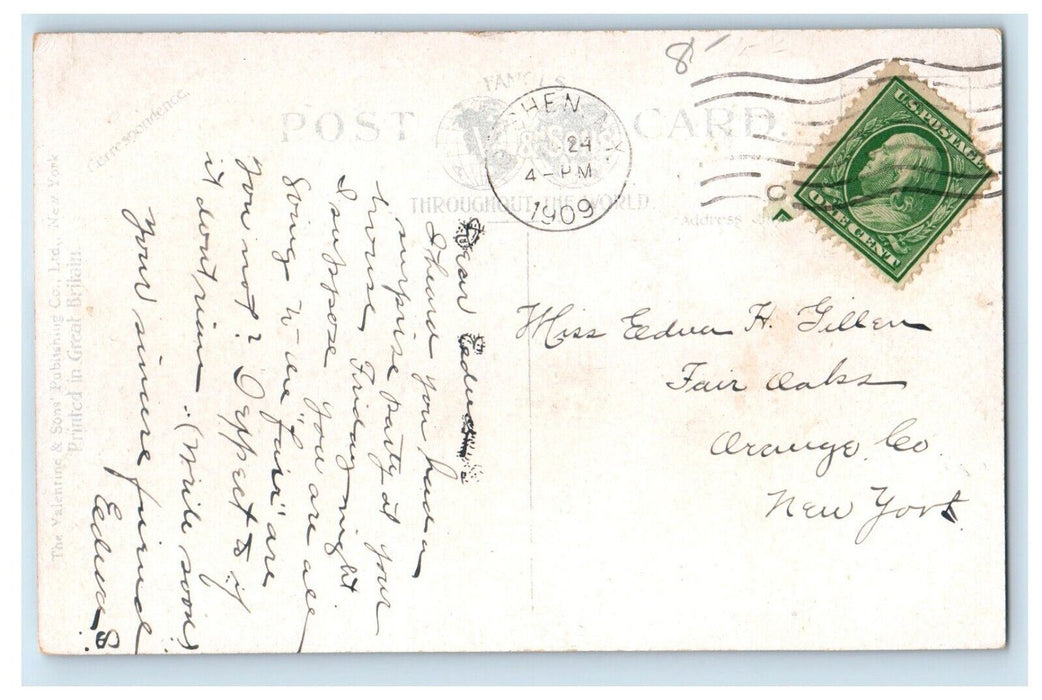 8
Correspondence.
FAMOUS
POST CARD.
THROUGHOUT THE WORLD.
Address
SHEN, N.
24
4-PM
1909
U.S. POSTAGE
ONE CENT
Dear Edna:
I heard you had a
surprise party at your
house Friday night.
I suppose you are all
going to the "fair" are
you not? I expect to if
it don't rain. (Write soon)
Your sincere friend
Edna S.
Miss Edna H. Gillen
Fair Oaks
Orange Co
New York.
The Valentine & Sons' Publishing Co., Ltd., New York
Printed in Great Britain.